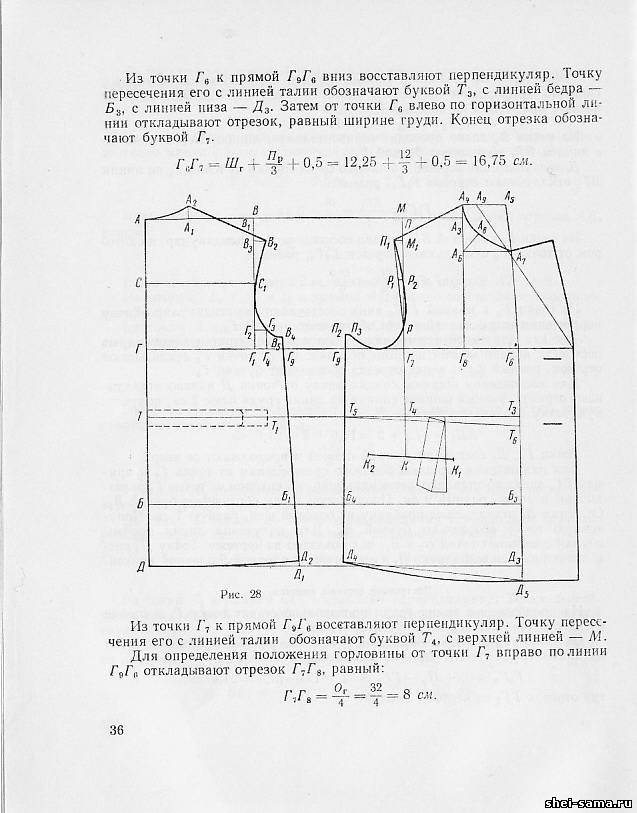 Из точки Г₆ к прямой Г₉Г₆ вниз восставляют перпендикуляр. Точку
пересечения его с линией талии обозначают буквой Т₃, с линией бедра —
Б₃, с линией низа — Д₃. Затем от точки Г₆ влево по горизонтальной ли-
нии откладывают отрезок, равный ширине груди. Конец отрезка обозна-
чают буквой Г₇.
Г₆Г₇ = Шг + Пр/3 + 0,5 = 12,25 + 12/3 + 0,5 = 16,75 см.
А А₂ А₁ В В₁ М П А₄ А₉ А₅
В₃ В₂ П₁ М₁ А₃ А₈ А₆ А₇
С С₁ Р₁ Р₂
Г₂ Г₃ В₄ В₅ П₂ П₃ Р
Г Г₁ Г₄ Г₉ Г₉ Г₇ Г₈ Г₆
Т Т₁ Т₅ Т₄ Т₃ Т₆
К₂ К К₁
Б Б₁ Б₄ Б₃
Д Д₂ Д₁ Д₄ Д₃ Д₅
Рис. 28
Из точки Г₇ к прямой Г₉Г₆ восставляют перпендикуляр. Точку пересе-
чения его с линией талии обозначают буквой Т₄, с верхней линией — М.
Для определения положения горловины от точки Г₇ вправо по линии
Г₉Г₆ откладывают отрезок Г₇Г₈, равный:
Г₇Г₈ = Ог/4 = 32/4 = 8 см.
36
shei-sama.ru